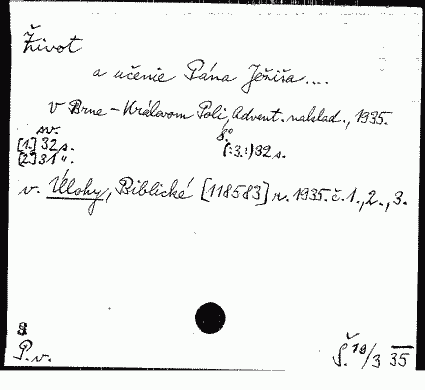 Život
a učenie Pána Ježiša....
v Brne - Královom Poli, Advent. naklad., 1935.
sv. 8°
[1.] 32 s. (:3.:) 32 s.
[2.] 31 ".
v. Úlohy, Biblické [118583] r. 1935. č. 1., 2., 3.
P. v.
Š. 19/3 35